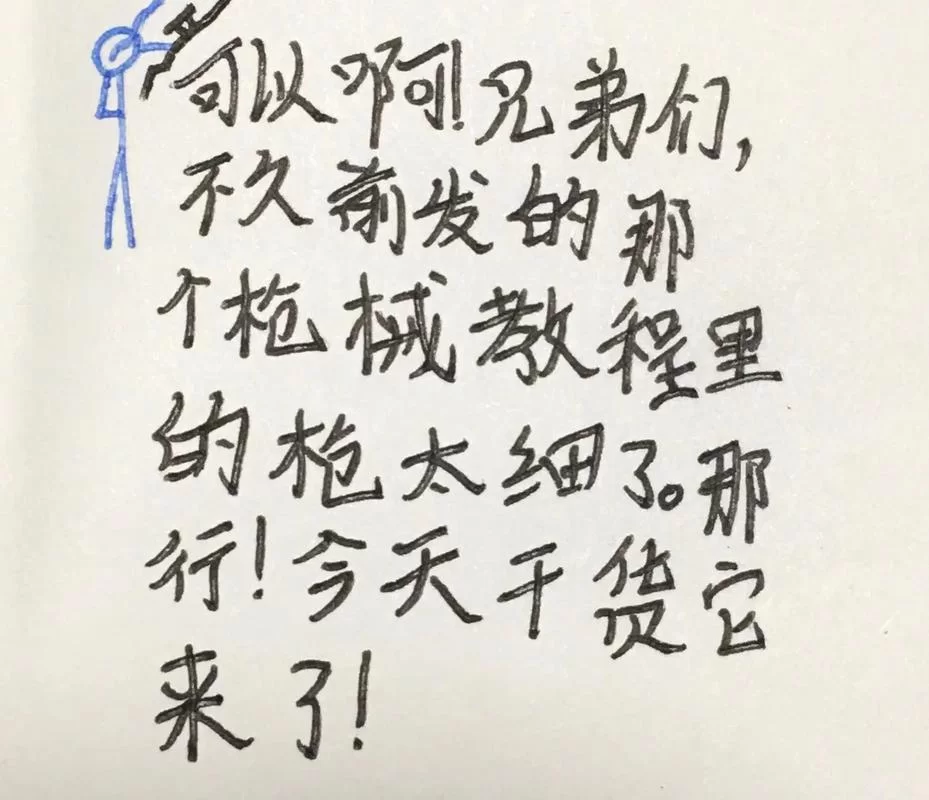 可以啊!兄弟们,
不久前发的那
个枪械教程里
的枪太细了。那
行!今天干货它
来了!